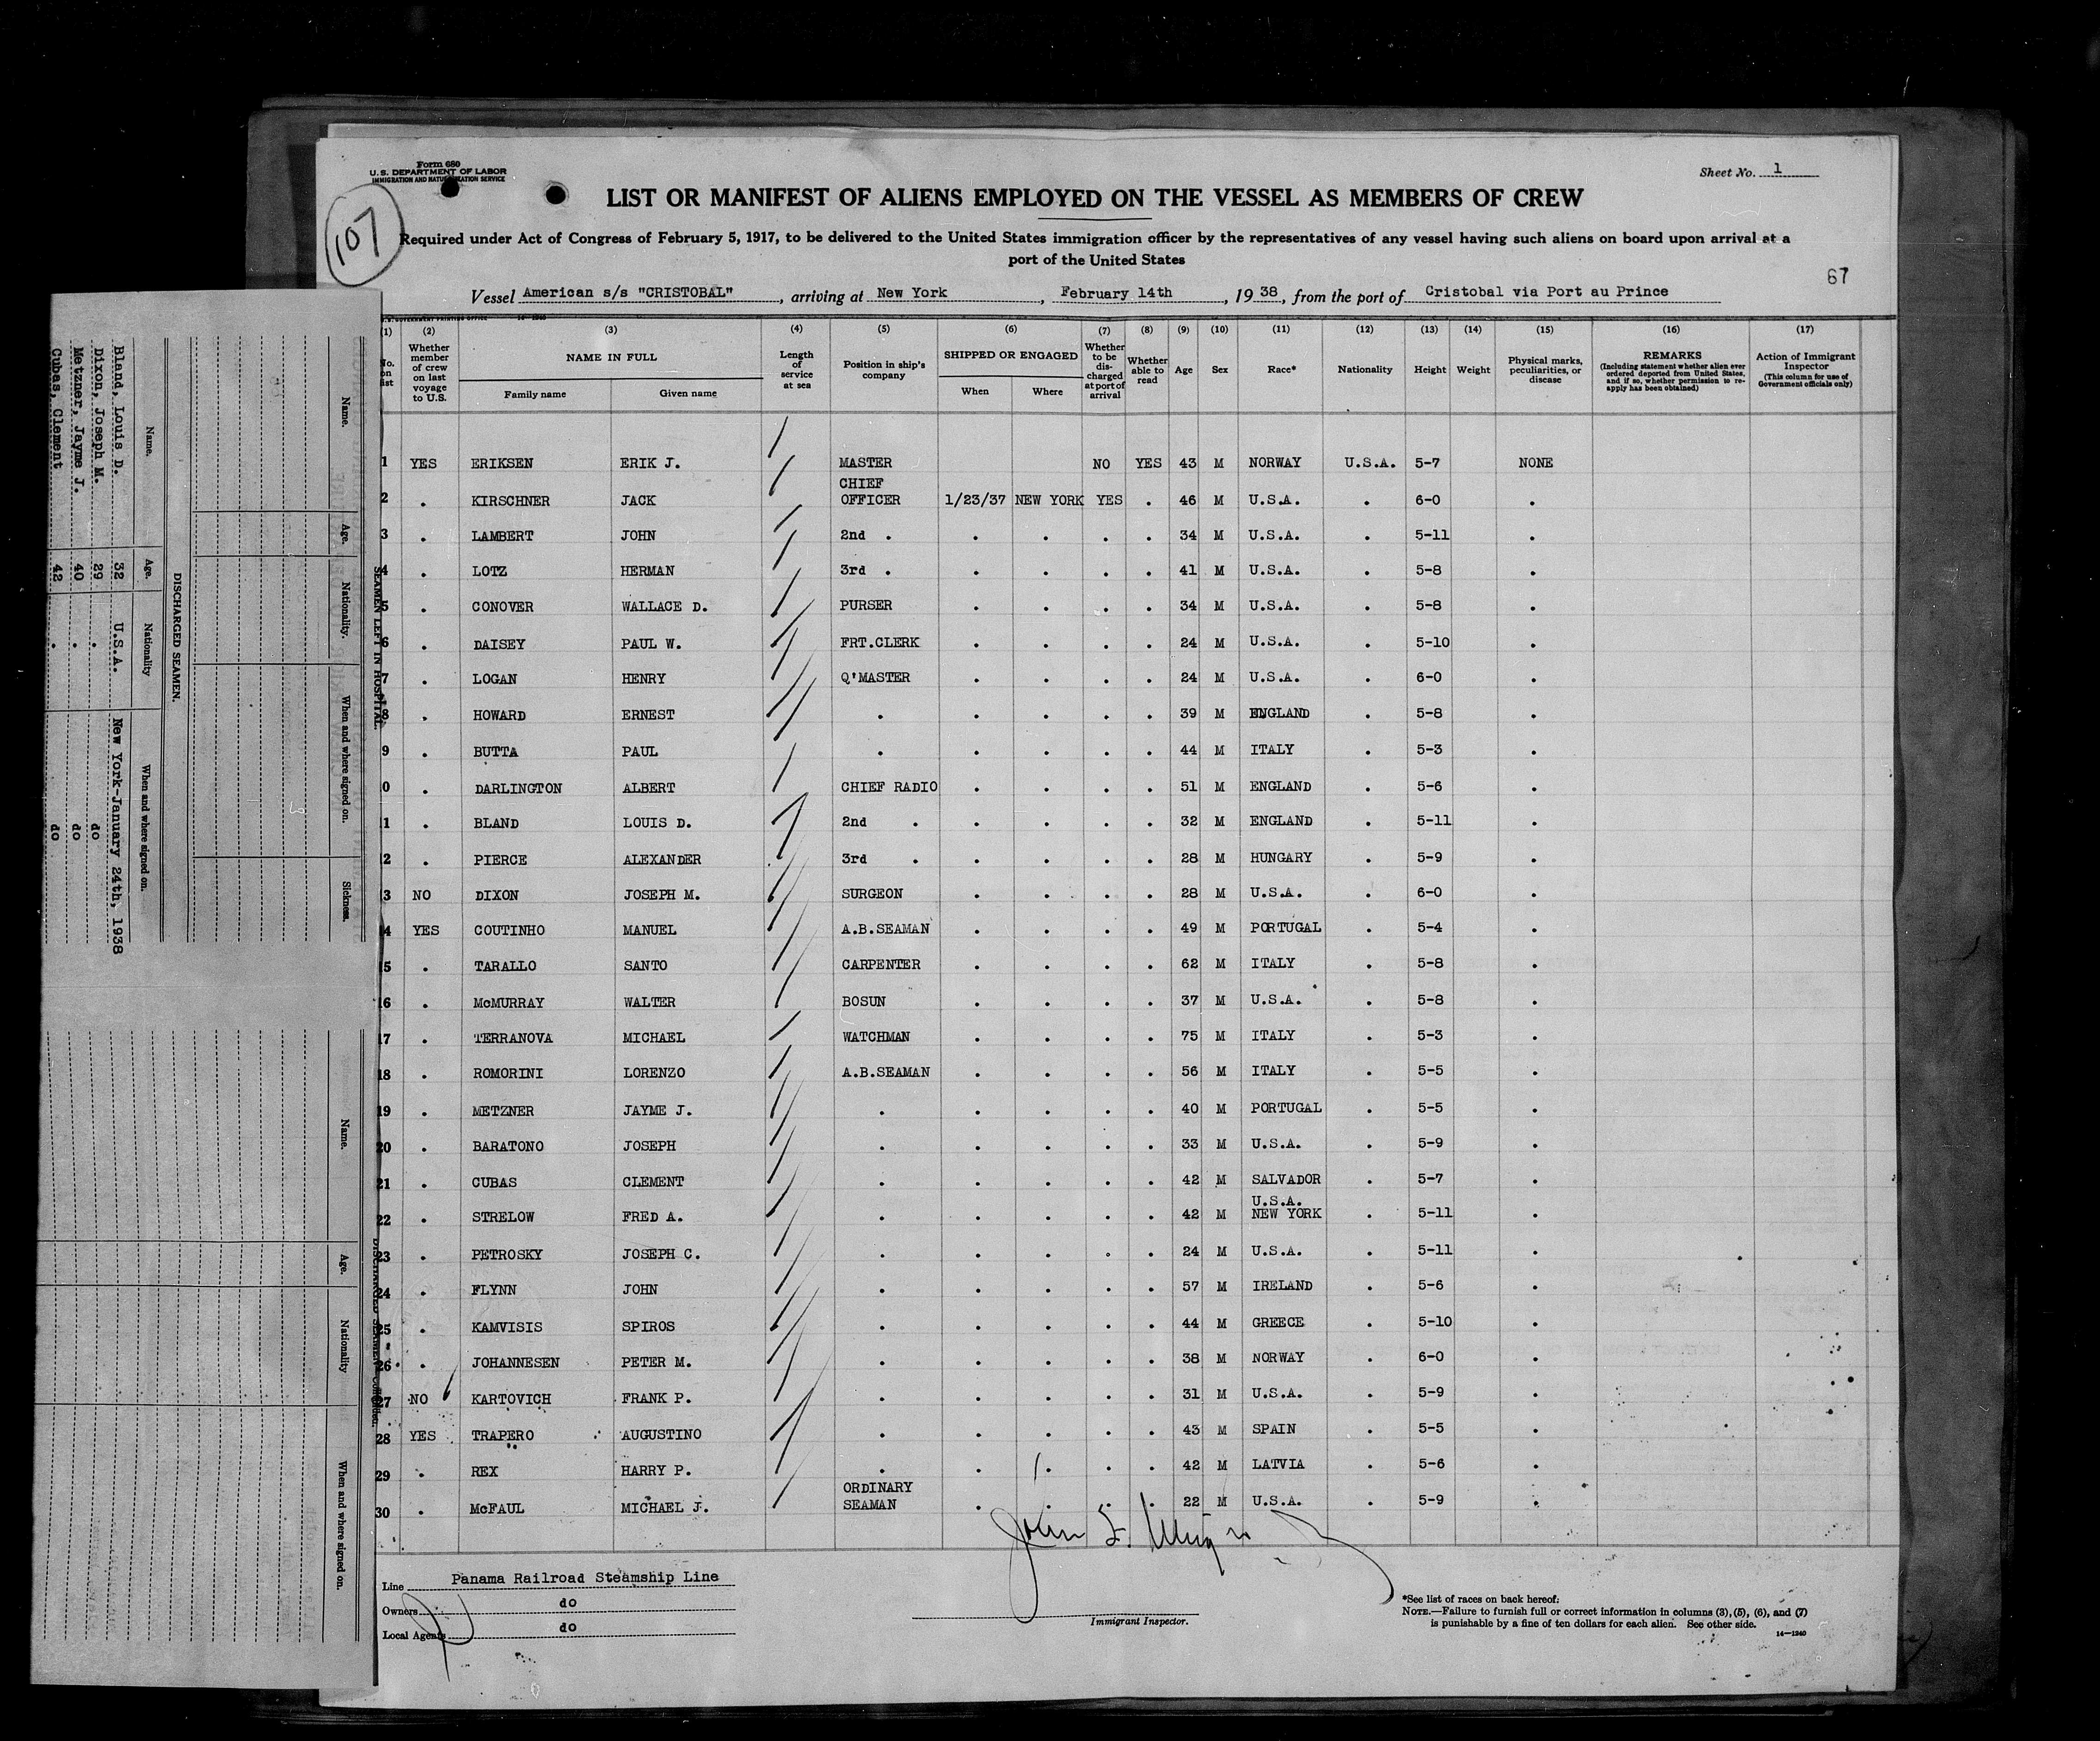 Form 680
U. S. DEPARTMENT OF LABOR
IMMIGRATION AND NATURALIZATION SERVICE
Sheet No. 1
107
LIST OR MANIFEST OF ALIENS EMPLOYED ON THE VESSEL AS MEMBERS OF CREW
Required under Act of Congress of February 5, 1917, to be delivered to the United States immigration officer by the representatives of any vessel having such aliens on board upon arrival at a
port of the United States
67
Vessel American s/s "CRISTOBAL", arriving at New York, February 14th, 1938, from the port of Cristobal via Port au Prince
(1) (2) (3) (4) (5) (6) (7) (8) (9) (10) (11) (12) (13) (14) (15) (16) (17)
No. on list
Whether member of crew on last voyage to U.S.
NAME IN FULL
Family name Given name
Length of service at sea
Position in ship's company
SHIPPED OR ENGAGED
When Where
Whether to be discharged at port of arrival
Whether able to read
Age
Sex
Race*
Nationality
Height
Weight
Physical marks, peculiarities, or disease
REMARKS
(Including statement whether alien ever ordered deported from United States, and if so, whether permission to reapply has been obtained)
Action of Immigrant Inspector
(This column for use of Government officials only)
1 YES ERIKSEN ERIK J. MASTER NO YES 43 M NORWAY U.S.A. 5-7 NONE
2 . KIRSCHNER JACK CHIEF OFFICER 1/23/37 NEW YORK YES . 46 M U.S.A. . 6-0 .
3 . LAMBERT JOHN 2nd . . . . . 34 M U.S.A. . 5-11 .
4 . LOTZ HERMAN 3rd . . . . . 41 M U.S.A. . 5-8 .
5 . CONOVER WALLACE D. PURSER . . . . 34 M U.S.A. . 5-8 .
6 . DAISEY PAUL W. FRT.CLERK . . . . 24 M U.S.A. . 5-10 .
7 . LOGAN HENRY Q'MASTER . . . . 24 M U.S.A. . 6-0 .
8 . HOWARD ERNEST . . . . . 39 M ENGLAND . 5-8 .
9 . BUTTA PAUL . . . . . 44 M ITALY . 5-3 .
0 . DARLINGTON ALBERT CHIEF RADIO . . . . 51 M ENGLAND . 5-6 .
1 . BLAND LOUIS D. 2nd . . . . . 32 M ENGLAND . 5-11 .
2 . PIERCE ALEXANDER 3rd . . . . . 28 M HUNGARY . 5-9 .
3 NO DIXON JOSEPH M. SURGEON . . . . 28 M U.S.A. . 6-0 .
4 YES COUTINHO MANUEL A.B.SEAMAN . . . . 49 M PORTUGAL . 5-4 .
5 . TARALLO SANTO CARPENTER . . . . 62 M ITALY . 5-8 .
16 . McMURRAY WALTER BOSUN . . . . 37 M U.S.A. . 5-8 .
17 . TERRANOVA MICHAEL WATCHMAN . . . . 75 M ITALY . 5-3 .
18 . ROMORINI LORENZO A.B.SEAMAN . . . . 56 M ITALY . 5-5 .
19 . METZNER JAYME J. . . . . . 40 M PORTUGAL . 5-5 .
20 . BARATONO JOSEPH . . . . . 33 M U.S.A. . 5-9 .
21 . CUBAS CLEMENT . . . . . 42 M SALVADOR . 5-7 .
22 . STRELOW FRED A. . . . . . 42 M U.S.A. NEW YORK . 5-11 .
23 . PETROSKY JOSEPH C. . . . . . 24 M U.S.A. . 5-11 .
24 . FLYNN JOHN . . . . . 57 M IRELAND . 5-6 .
25 . KAMVISIS SPIROS . . . . . 44 M GREECE . 5-10 .
26 . JOHANNESEN PETER M. . . . . . 38 M NORWAY . 6-0 .
27 NO KARTOVICH FRANK P. . . . . . 31 M U.S.A. . 5-9 .
28 YES TRAPERO AUGUSTINO . . . . . 43 M SPAIN . 5-5 .
29 . REX HARRY P. . . . . . 42 M LATVIA . 5-6 .
30 . McFAUL MICHAEL J. ORDINARY SEAMAN . . . . 22 M U.S.A. . 5-9 .
Line Panama Railroad Steamship Line
Owners do
Local Agents do
John
Immigrant Inspector.
*See list of races on back hereof.
NOTE.—Failure to furnish full or correct information in columns (3), (5), (6), and (7)
is punishable by a fine of ten dollars for each alien. See other side.
14—1240
SEAMEN LEFT IN HOSPITAL.
Name. Age. Nationality. When and where signed on. Sickness.
DISCHARGED SEAMEN.
Name. Age. Nationality When and where signed on.
Bland, Louis D. 32 U.S.A. New York-January 24th, 1938
Dixon, Joseph M. 29 . do
Metzner, Jayme J. 40 . do
Cubas, Clement 42 . do
DISCHARGED SEAMEN
Name. Age. Nationality When and where signed on.